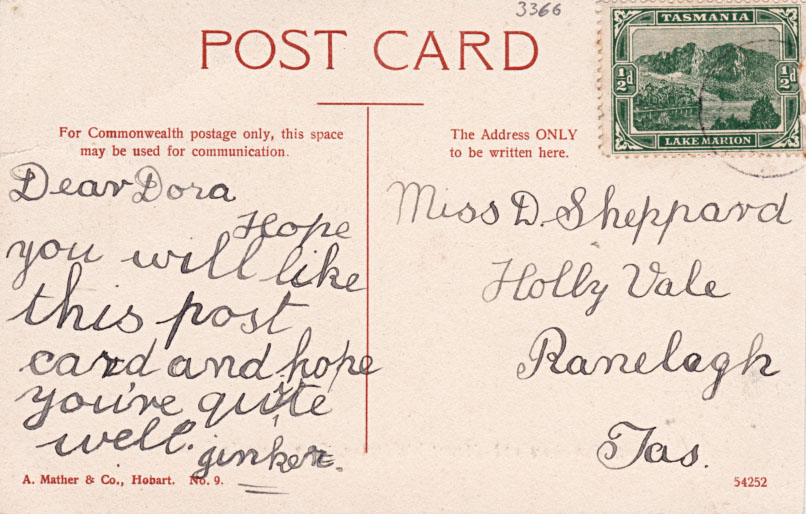 3366
POST CARD
TASMANIA
½d ½d
LAKE MARION
For Commonwealth postage only, this space
may be used for communication.
The Address ONLY
to be written here.
Dear Dora
Hope
you will like
this post
card and hope
you're quite
well.
ginker.
Miss D. Sheppard
Holly Vale
Ranelagh
Tas.
A. Mather & Co., Hobart. No. 9.
54252